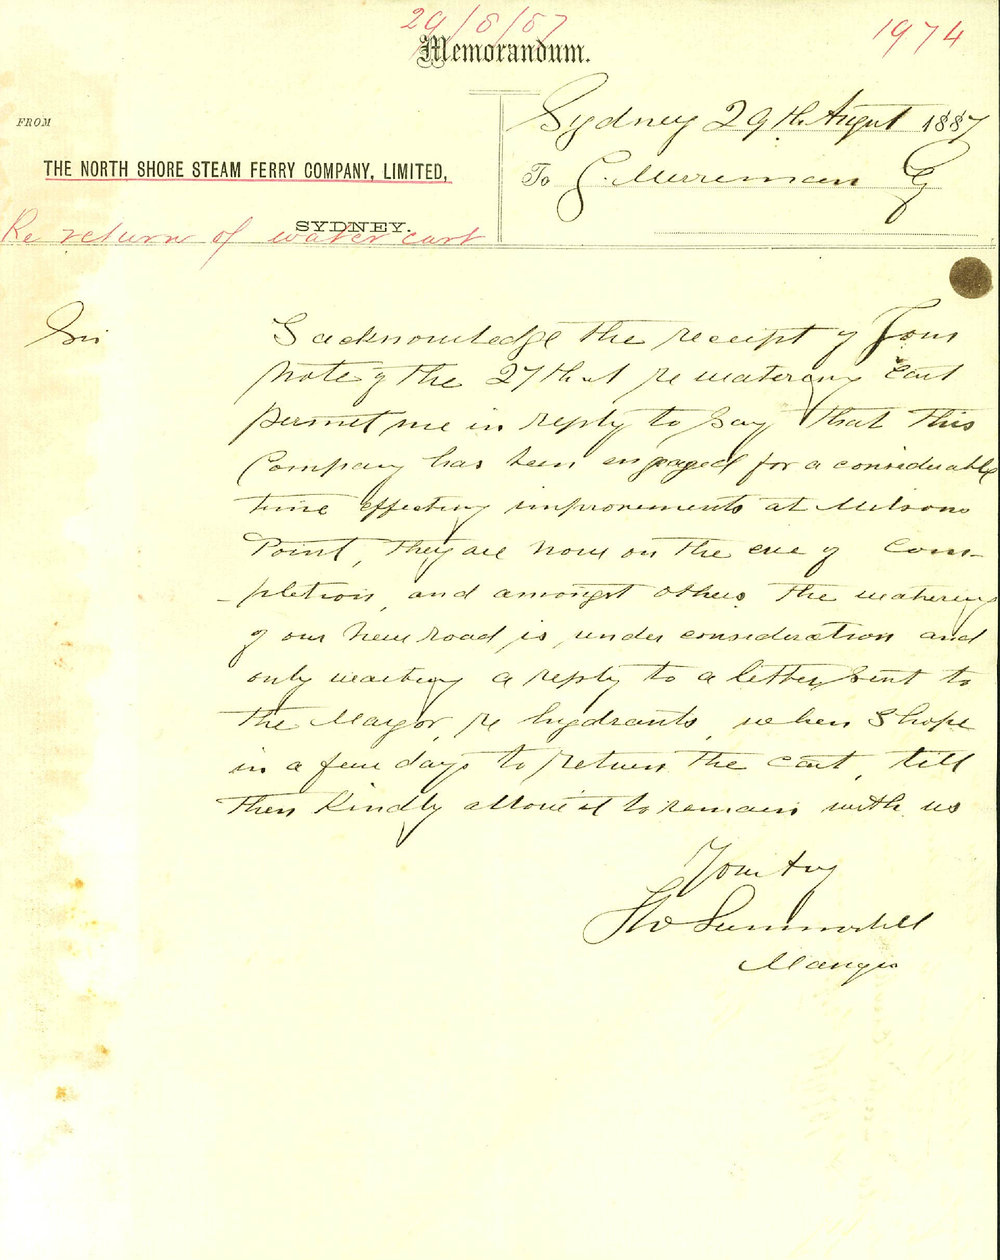 29/8/87
1974
Memorandum.
Sydney 29th August 1887
FROM
THE NORTH SHORE STEAM FERRY COMPANY, LIMITED,
To G. Merriman Esq
SYDNEY.
Re return of water cart
Sir
I acknowledge the receipt of Your
Note of the 27th ult re watering cart
permit me in reply to say that this
Company has been engaged for a considerable
time effecting improvements at Milsons
Point, they are now on the eve of com-
-pletion, and amongst others the watering
of our New road is under consideration and
only waiting a reply to a letter sent to
the Mayor, re hydrants, when I hope
in a few days to return the cart, till
then kindly allow it to remain with us
Your
Summerbell
Manger